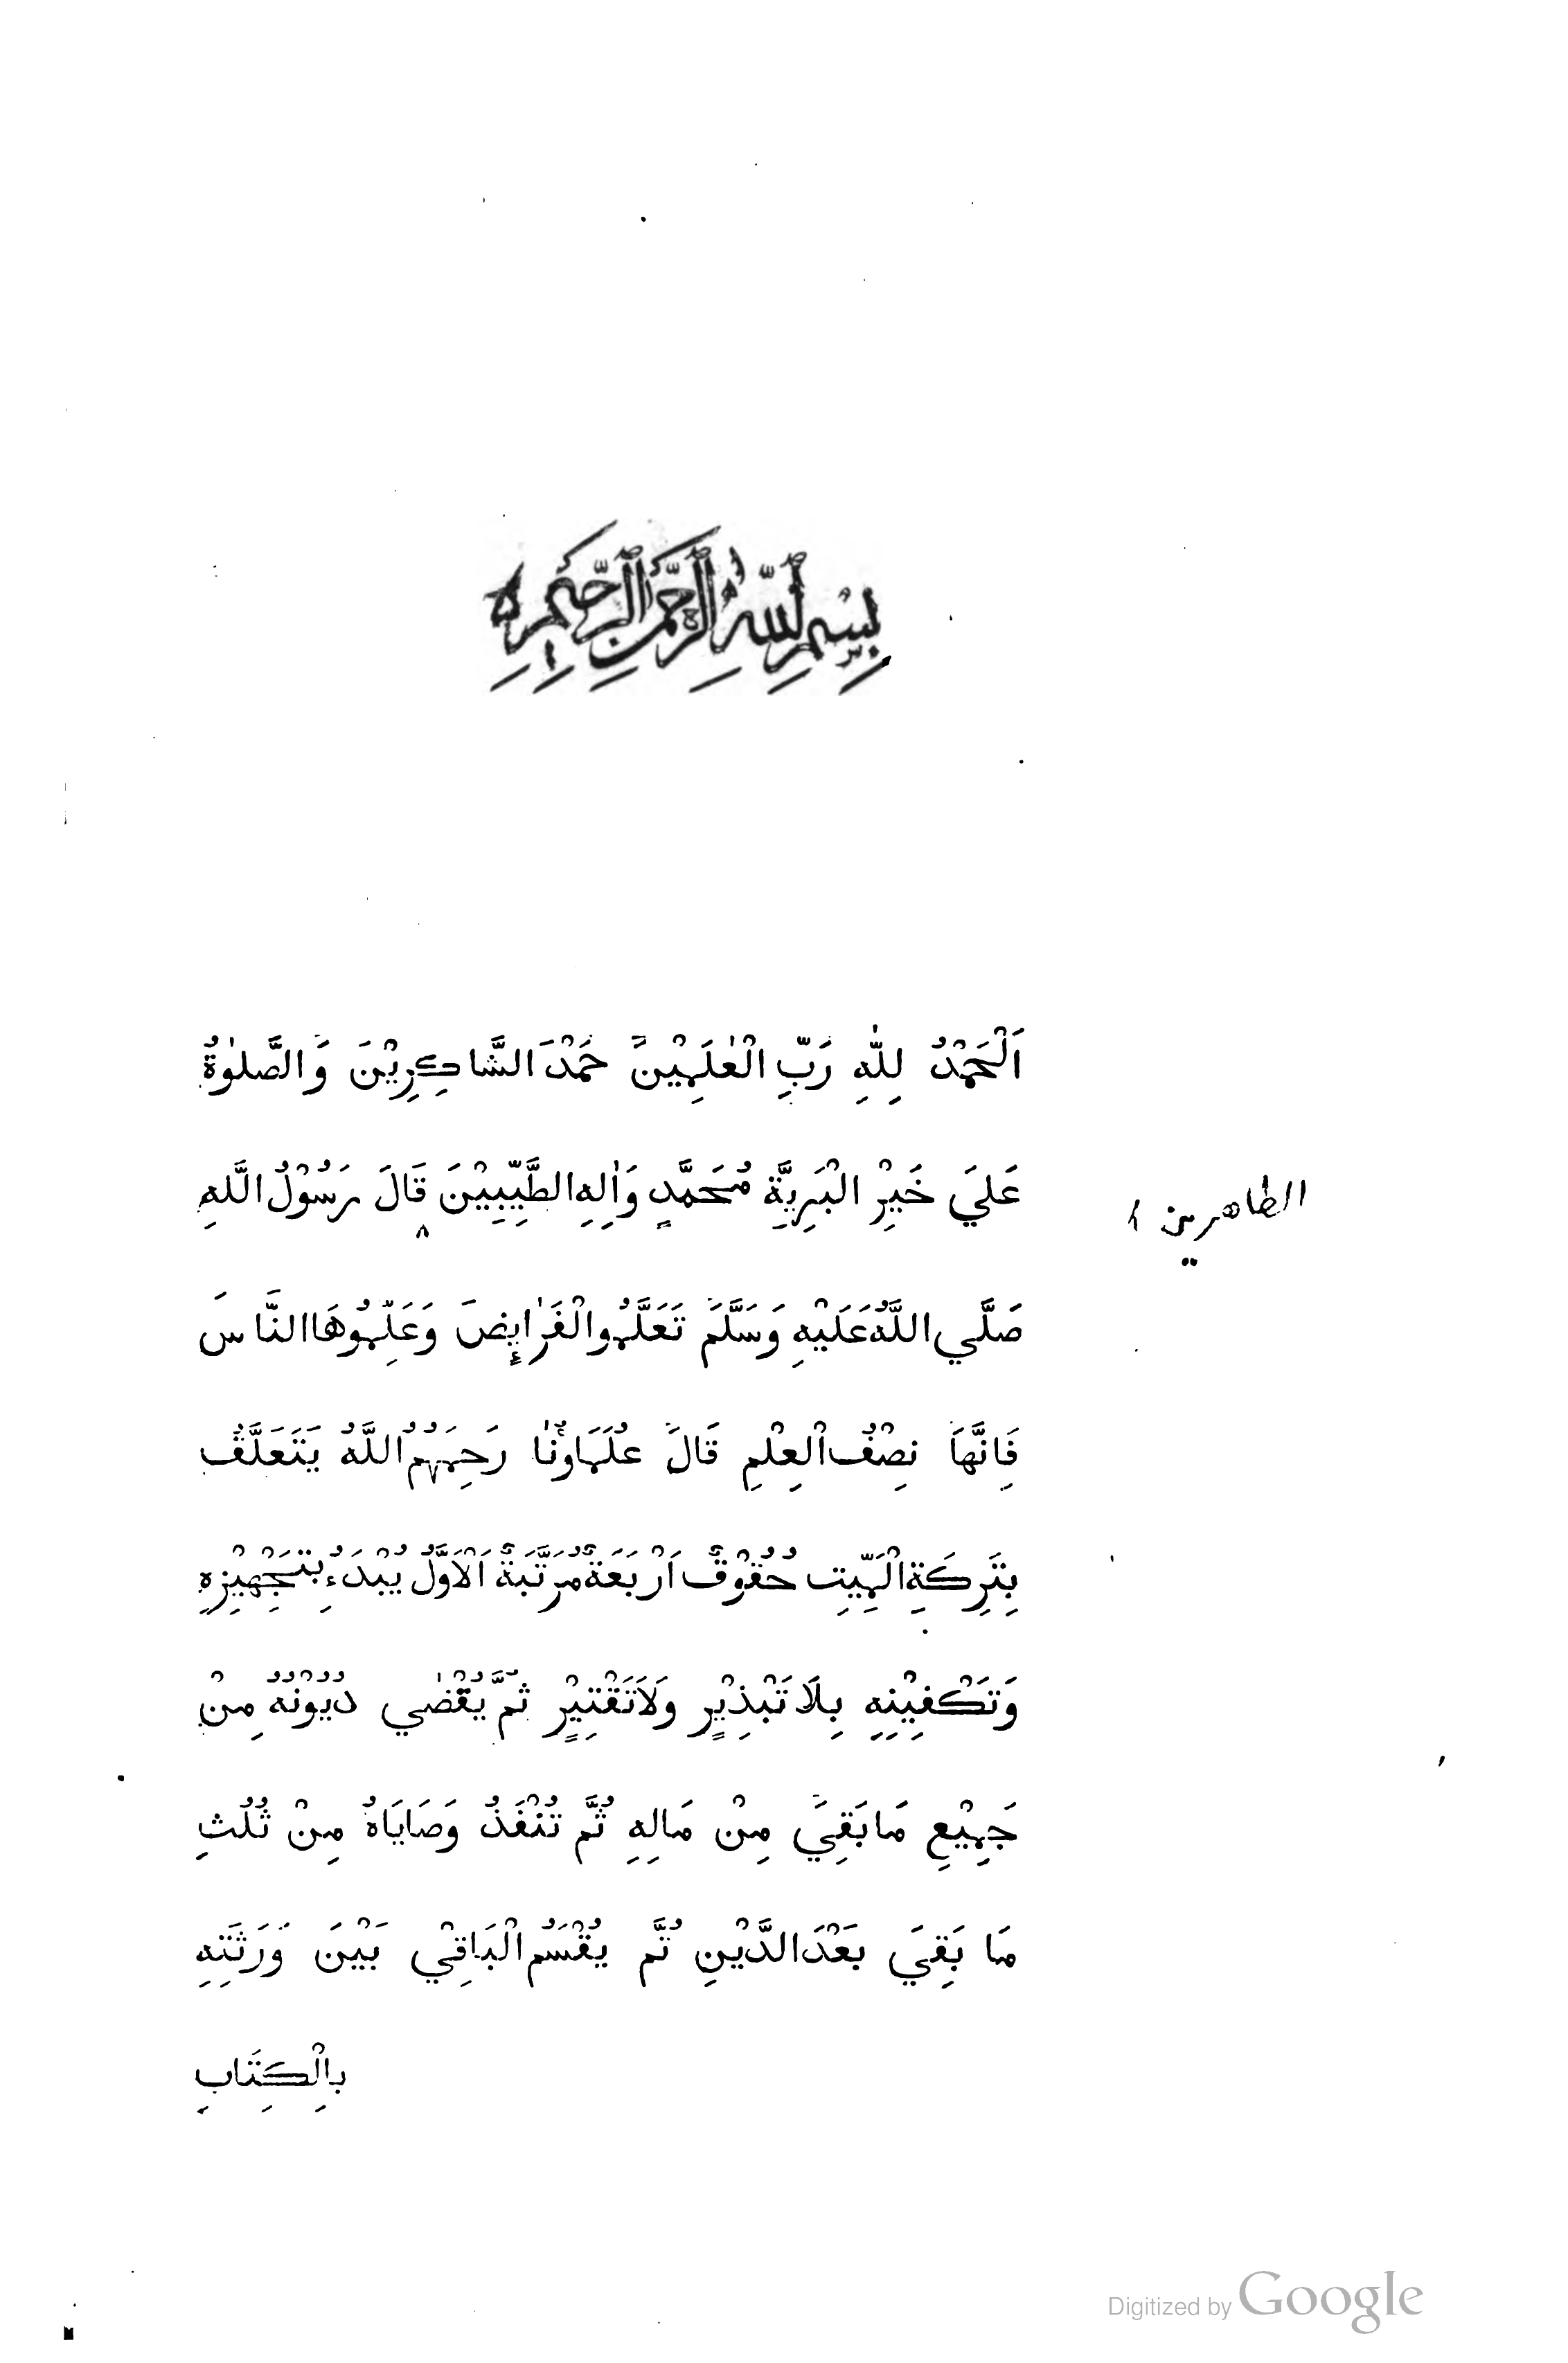 بِسْمِ اللَّهِ الرَّحْمَنِ الرَّحِيمِ
اَلْحَمْدُ لِلّٰهِ رَبِّ الْعٰلَمِيْنَ حَمْدَ الشَّاكِرِيْنَ وَالصَّلٰوةُ
عَلَيَ خَيْرِ الْبَرِيَّةِ مُحَمَّدٍ وَاٰلِهِ الطَّيِّبِيْنَ ٨ قَالَ رَسُوْلُ اللَّهِ
الطاهرين
صَلَّي اللَّهُ عَلَيْهِ وَسَلَّمَ تَعَلَّمُوا الْفَرٰايِٕضَ وَعَلِّمُوهَا النَّاسَ
فَاِنَّهَا نِصْفُ الْعِلْمِ قَالَ عُلَمَاؤُنٰا رَحِمَهُمُ اللَّهُ يَتَعَلَّقُ
بِتَرِكَةِ الْمَيِّتِ حُقُوْقٌ اَرْبَعَةٌ مُرَتَّبَةٌ اَلْاَوَّلُ يُبْدَءُ بِتَجْهِيْزِهِ
وَتَكْفِيْنِهِ بِلَا تَبْذِيْرٍ وَلَا تَقْتِيْرٍ ثُمَّ يُقْضٰي دُيُوْنُهُ مِنْ
جَمِيْعِ مَا بَقِيَ مِنْ مَالِهِ ثُمَّ تُنْفَذُ وَصَايَاهُ مِنْ ثُلُثِ
مَا بَقِيَ بَعْدَ الدَّيْنِ ثُمَّ يُقْسَمُ الْبَاقِيْ بَيْنَ وَرَثَتِهِ
بِالْكِتَابِ
Digitized by Google